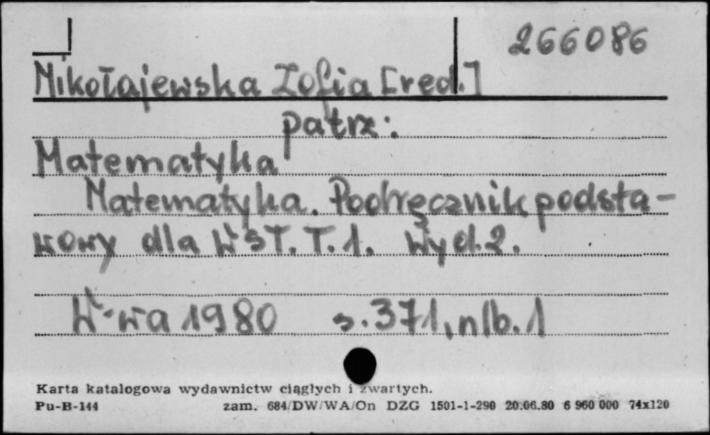 266086
Mikołajewska Zofia [red.]
patrz:
Matematyka
Matematyka. Podręcznik podsta-
wowy dla WST. T. 1. Wyd. 2.
W-wa 1980 s. 371, nlb. 1
Karta katalogowa wydawnictw ciągłych i zwartych.
Pu-B-144 zam. 684/DW/WA/On DZG 1501-1-290 20.06.80 6 960 000 74x120